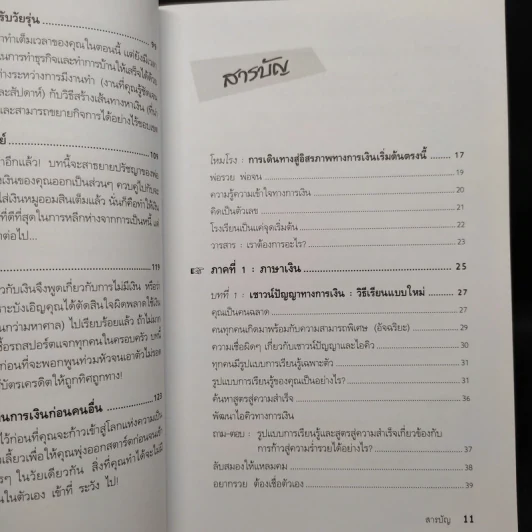 รับวัยรุ่น
าทำเต็มเวลาของคุณในตอนนี้ แต่ยังมีเวลา
ในการทำธุรกิจและทำการบ้านให้เสร็จได้ด้วย
ต่างระหว่างการมีงานทำ
ละสัปดาห์) กับวิธีสร้างเส้นทางหาเงิน
และสามารถขยายกิจการได้อย่างไร้ขอบเขต
ย์ 109
าอีกแล้ว! บทนี้จะสาธยายปรัชญาของพ่อ
งเงินของคุณออกเป็นส่วนๆ ควบคู่ไปกับจะ
ใส่เงินหมูออมสินเต็มแล้ว นั่นก็คือทำให้เงิน
ที่ดีที่สุดในการหลีกห่างจากการเป็นหนี้ แต่
าต่อไป...
119
วกับเงินจึงพูดเกี่ยวกับการไม่มีเงิน หรือว่า
าะบังเอิญคุณได้ตัดสินใจผิดพลาดใช้เงิน
กนกว่ามหาศาล) ไปเรียบร้อยแล้ว ถ้าไม่มาก
ซื้อรถสปอร์ตแจกทุกคนในครอบครัว บทนี้
ก่อนที่จะพอกพูนท่วมหัวจนเอาตัวไม่รอด
บัตรเครดิตให้ถูกทิศถูกทาง!
นการเงินก่อนคนอื่น 123
ไว้ก่อนที่คุณจะก้าวเข้าสู่โลกแห่งความเป็น
เลี้ยวเพื่อให้คุณพุ่งออกสตาร์ตก่อนจนเข้า
รๆ ในวัยเดียวกัน สิ่งที่คุณทำได้จะไม่มี
นในตัวเอง เข้าที่ ระวัง ไป!
สารบัญ
โหมโรง : การเดินทางสู่อิสรภาพทางการเงินเริ่มต้นตรงนี้ 17
พ่อรวย พ่อจน 19
ความรู้ความเข้าใจทางการเงิน 20
คิดเป็นตัวเลข 21
โรงเรียนเป็นแค่จุดเริ่มต้น 22
วารสาร : เราต้องการอะไร? 23
☞ ภาคที่ 1 : ภาษาเงิน 25
บทที่ 1 : เชาวน์ปัญญาทางการเงิน : วิธีเรียนแบบใหม่ 27
คุณเป็นคนฉลาด 27
คนทุกคนเกิดมาพร้อมกับความสามารถพิเศษ (อัจฉริยะ) 29
ความเชื่อผิดๆ เกี่ยวกับเชาวน์ปัญญาและไอคิว 30
ทุกคนมีรูปแบบการเรียนรู้เฉพาะตัว 31
รูปแบบการเรียนรู้ของคุณเป็นอย่างไร? 31
ค้นหาสูตรสู่ความสำเร็จ 36
พัฒนาไอคิวทางการเงิน
ถาม-ตอบ : รูปแบบการเรียนรู้และสูตรสู่ความสำเร็จเกี่ยวข้องกับ
การก้าวสู่ความร่ำรวยได้อย่างไร? 37
ลับสมองให้แหลมคม 38
อยากรวย ต้องเชื่อตัวเอง 39
สารบัญ 11